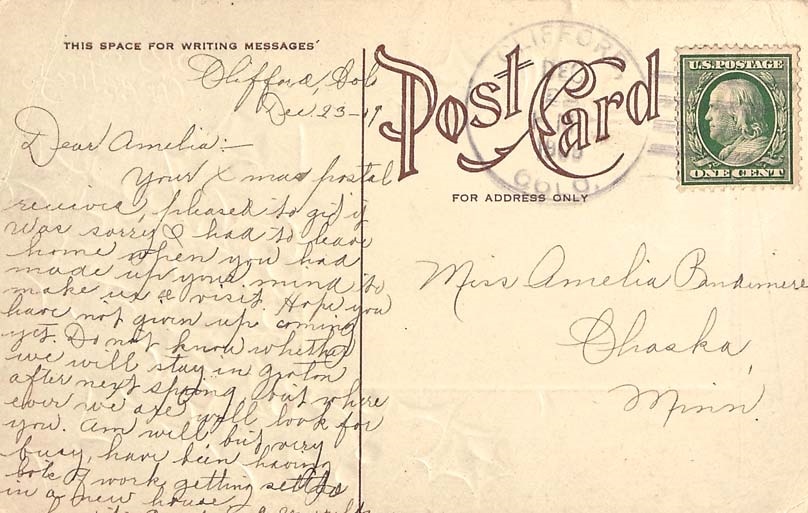 THIS SPACE FOR WRITING MESSAGES
Clifford, Colo
Dec 23-19
Dear Amelia:-
Your Xmas postal
received, pleased to get it
Was sorry I had to leave
home when you had
made up your mind to
make us a visit Hope you
have not given up coming
yet. Do not know whether
we will stay in Groton
after next spring but where
ever we are will look for
you. Am well but very
busy, have been having
lots of work getting settled
in a new house
Post Card
CLIFFORD
DEC
COLO.
U.S. POSTAGE
ONE CENT
FOR ADDRESS ONLY
Miss Amelia
Chaska,
Minn